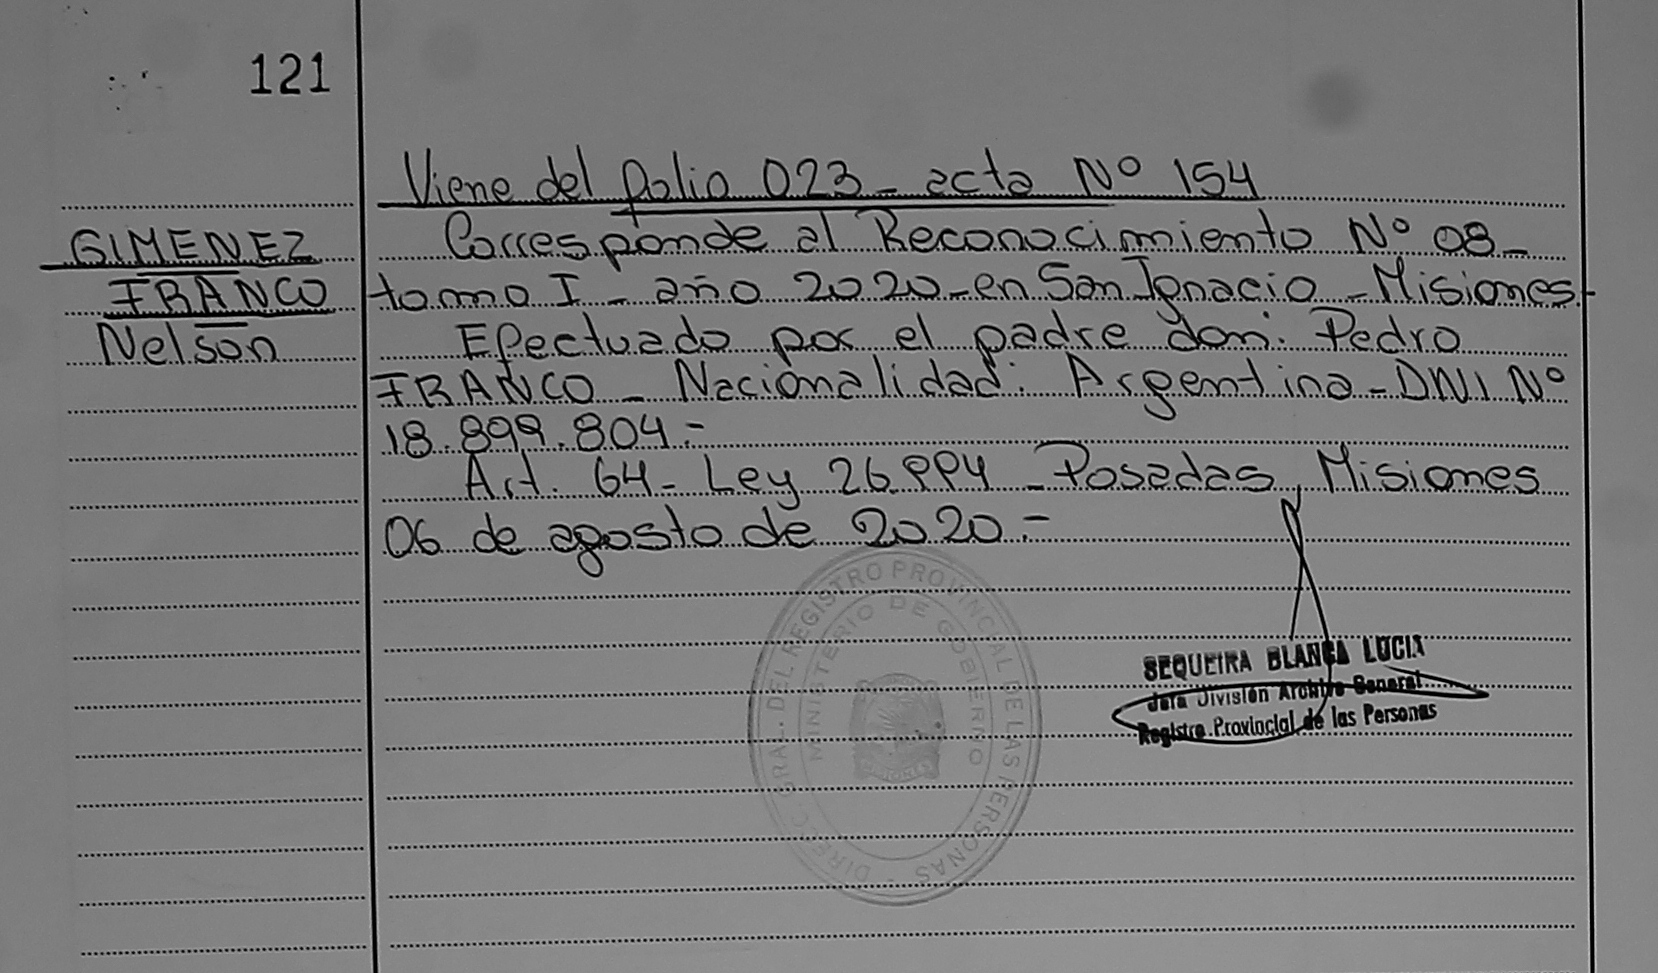 121
Viene del folio 023 - acta Nº 154
GIMENEZ
FRANCO
Nelson
Corresponde al Reconocimiento Nº 08 -
tomo I - año 2020 - en San Ignacio - Misiones
Efectuado por el padre don: Pedro
FRANCO - Nacionalidad: Argentina - DNI Nº
18.899.804.-
Art. 64 - Ley 26.994 - Posadas, Misiones
06 de agosto de 2020.-
DIREC. GRAL. DEL REGISTRO PROVINCIAL DE LAS PERSONAS
MINISTERIO DE GOBIERNO
MISIONES
SEQUEIRA BLANCA LUCIA
Jefa División Archivo General
Registro Provincial de las Personas